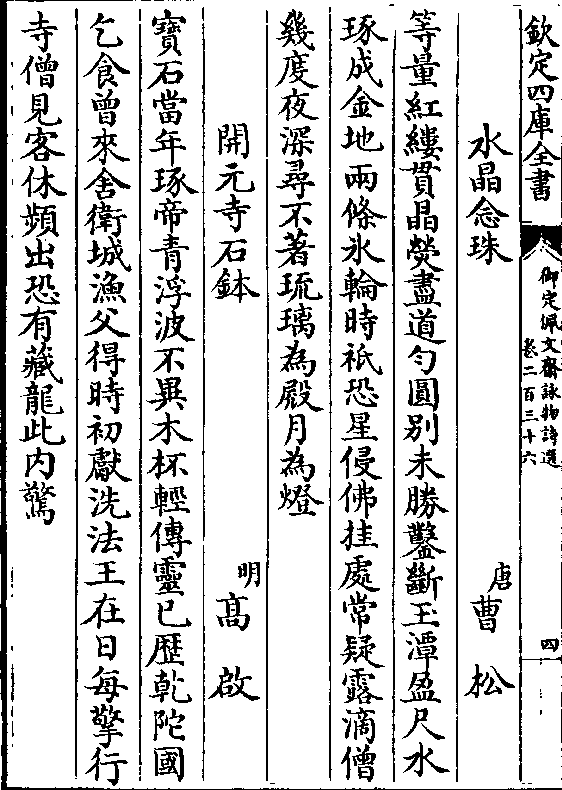 欽定四庫全書
御定佩文齋詠物詩選
卷二百三十六
四
水晶念珠
唐
曹松
等量紅縷貫晶熒盡道勻圓別未勝鑿斷玉潭盈尺水
琢成金地兩條氷輪時祇恐星侵佛挂處常疑露滴僧
幾度夜深尋不著琉璃為殿月為燈
開元寺石鉢
明
髙啟
寳石當年琢帝青浮波不異木杯輕傳靈已歴乾陀國
乞食曾來舍衛城漁父得時初獻洗法王在日每擎行
寺僧見客休頻出恐有藏龍此内驚